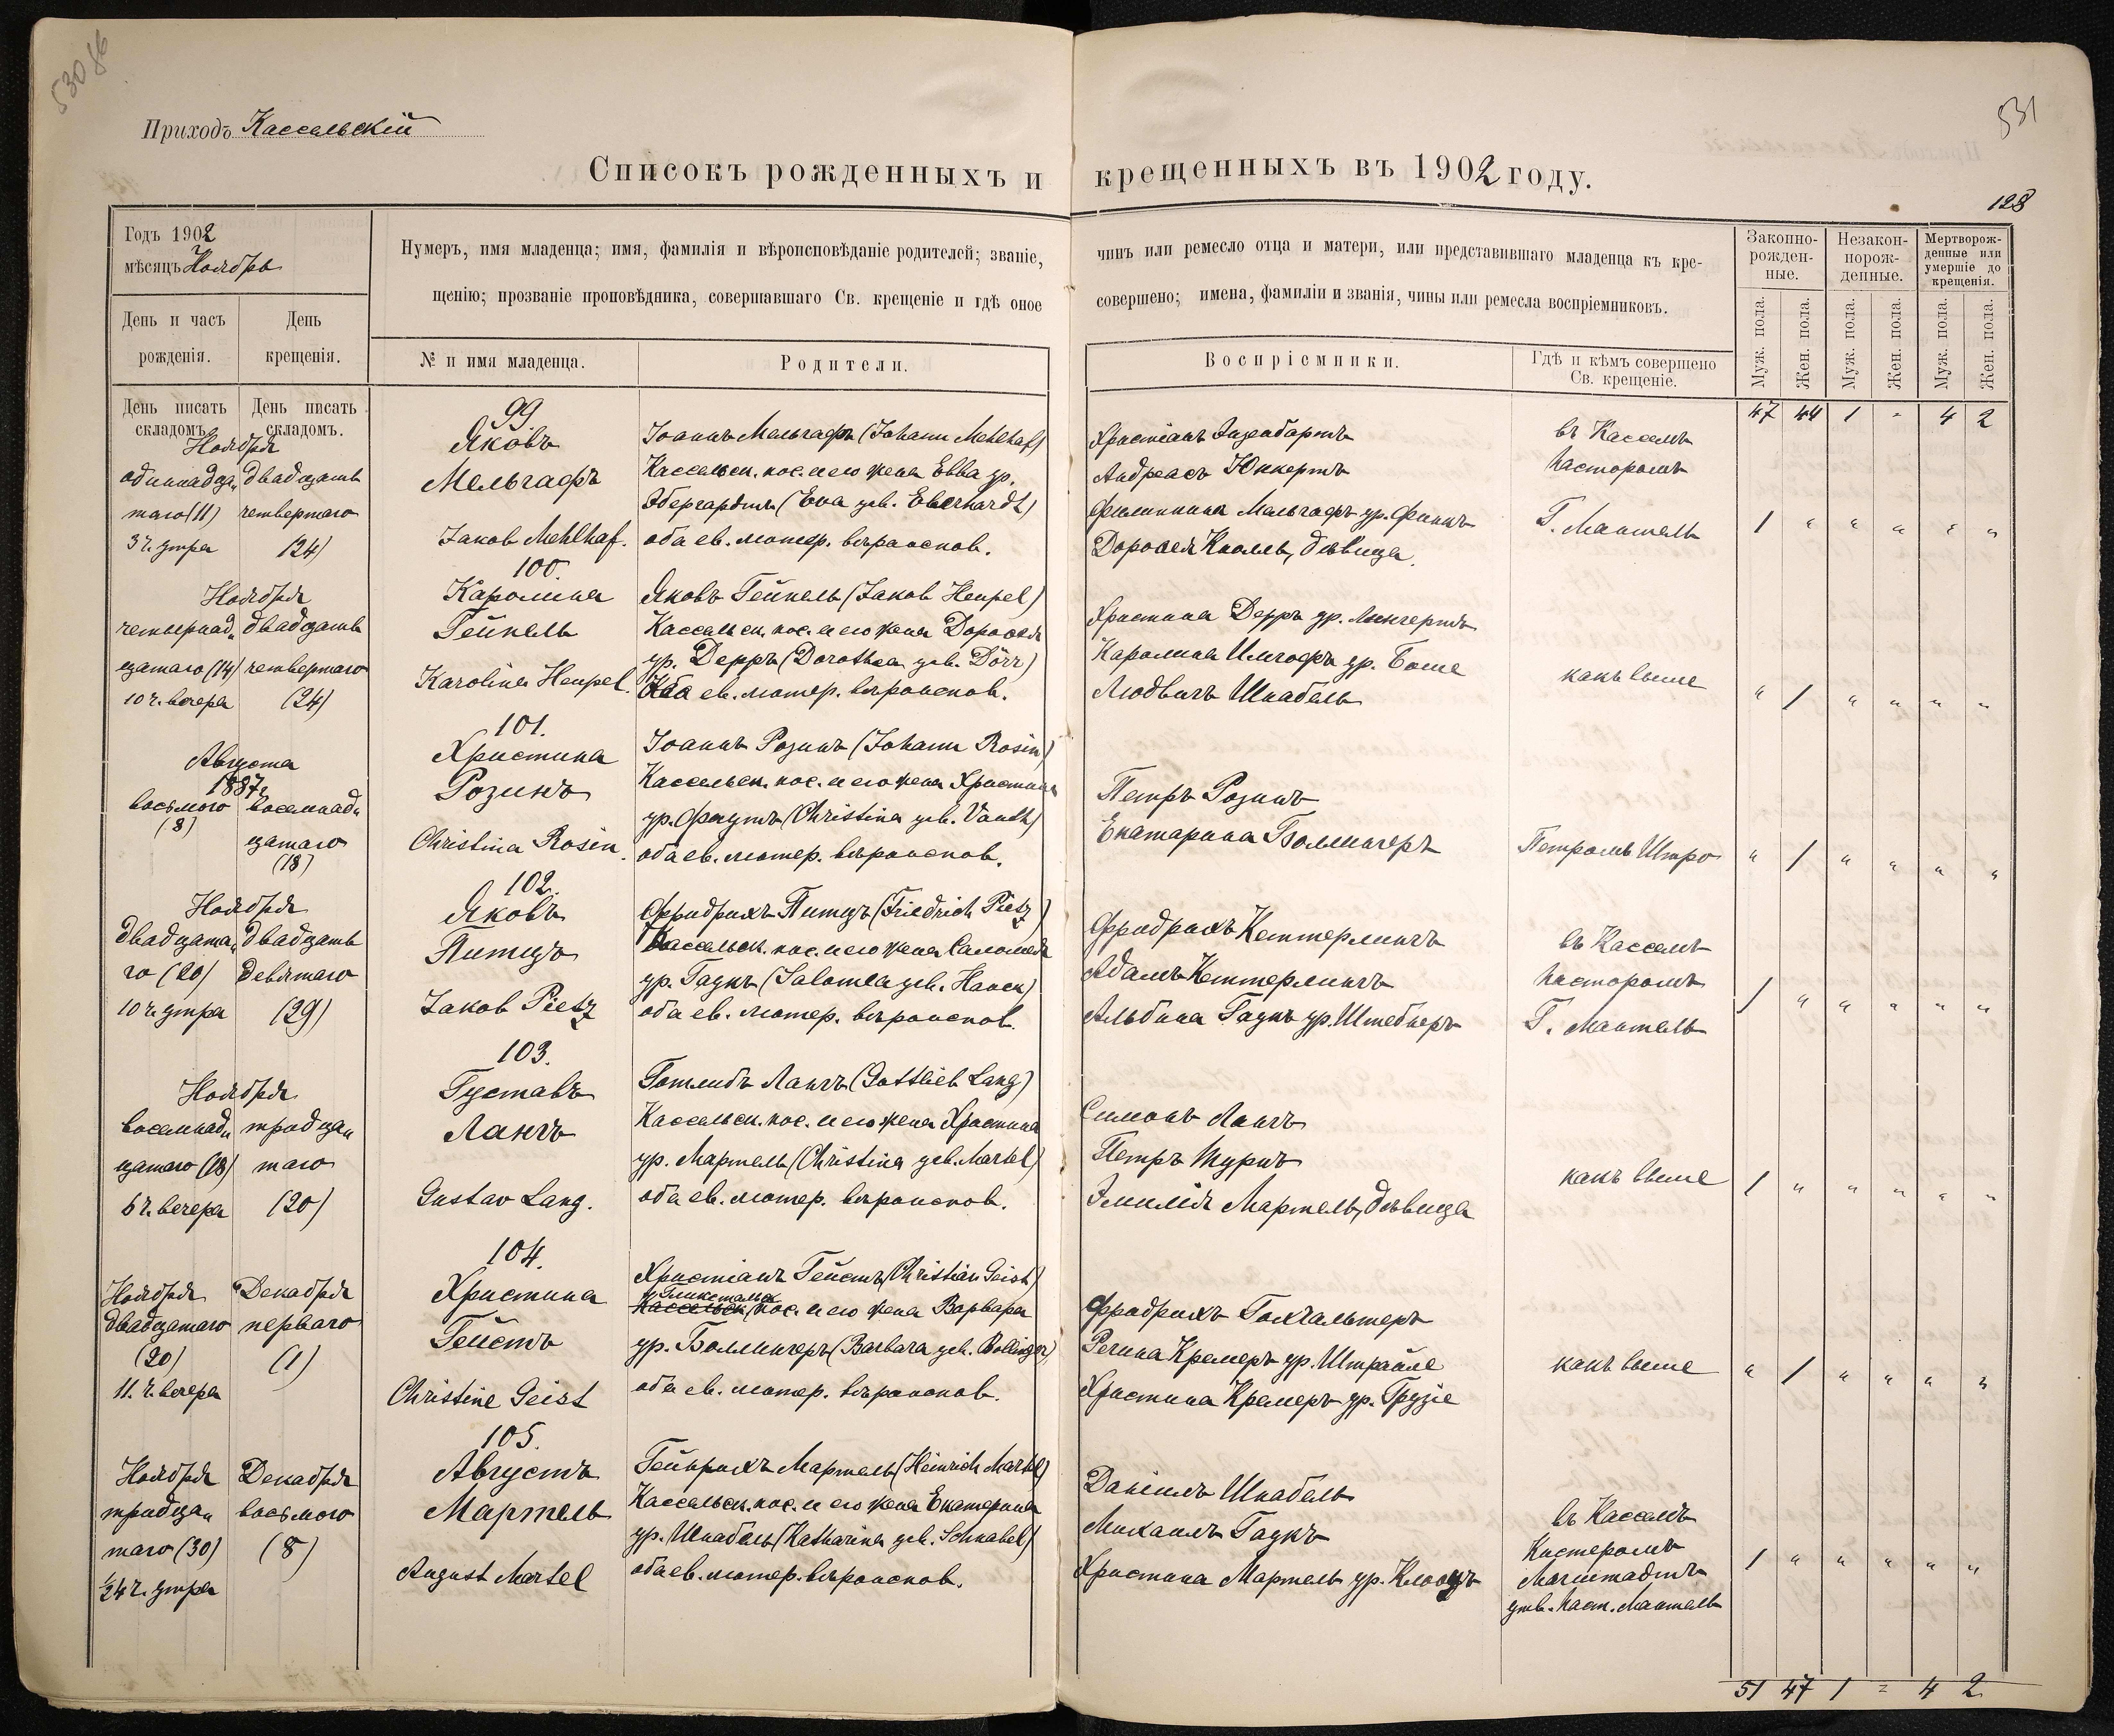 530 об
531
128
Приходъ Кассельскій
Списокъ рожденныхъ и крещенныхъ въ 1902 году.
Годъ 1902
мѣсяцъ Ноябрь
Нумеръ, имя младенца; имя, фамилія и вѣроисповѣданіе родителей; званіе,
щенію; прозваніе проповѣдника, совершавшаго Св. крещеніе и гдѣ оное
чинъ или ремесло отца и матери, или представившаго младенца къ кре-
совершено; имена, фамиліи и званія, чины или ремесла воспріемниковъ.
День и часъ
рожденія.
День
крещенія.
№ и имя младенца.
Родители.
Воспріемники.
Гдѣ и кѣмъ совершено
Св. крещеніе.
Законно-
рожден-
ные.
Незакон-
норож-
денные.
Мертворож-
денные или
умершіе до
крещенія.
Муж. пола.
Жен. пола.
Муж. пола.
Жен. пола.
Муж. пола.
Жен. пола.
День писать
складомъ.
День писать
складомъ.
47 44 1 - 4 2
Ноября
одиннадца„
таго (11)
3 ч. утра
двадцать
четвертаго
(24)
99.
Яковъ
Мельгафъ
Jakob Mehlhaf.
Іоаннъ Мельгафъ (Johann Mehlhaf)
Кассельск. пос. и его жена Евва ур.
Эбергардтъ (Eva geb. Eberhardt)
оба ев. лютер. вѣроиспов.
Христіанъ Эйзенбартъ
Андреасъ Юккертъ
Филиппина Мельгафъ ур. Финкъ
Доротея Кноль, дѣвица.
въ Кассель
пасторомъ
Г. Мантель
1 „ „ „ „ „
Ноября
четырнад„
цатаго (14)
10 ч. вечера
двадцать
четвертаго
(24)
100.
Каролина
Гейпель
Karolina Heupel.
Яковъ Гейпель (Jakob Heupel)
Кассельск. пос. и его жена Доротея
ур. Дерръ (Dorothea geb. Dörr)
оба ев. лютер. вѣроиспов.
Христина Дерръ ур. Линтертъ
Каролина Имгофъ ур. Боше
Людвигъ Шнабель
какъ выше
„ 1 „ „ „ „
Августа
1887 г.
восьмого
(8)
восемнад„
цатаго
(18)
101.
Христина
Розинъ
Christina Rosin.
Іоаннъ Розинъ (Johann Rosin)
Кассельск. пос. и его жена Христина
ур. Фаутъ (Christina geb. Vauth)
оба ев. лютер. вѣроиспов.
Петръ Розинъ
Екатерина Боллингеръ
Петромъ Штро
„ 1 „ „ „ „
Ноября
двадцата„
го (20)
10 ч. утра
двадцать
девятаго
(29)
102.
Яковъ
Питцъ
Jakob Pietz
Фридрихъ Питцъ (Friedrich Pietz)
Кассельск. пос. и его жена Саломея
ур. Гаукъ (Salomea geb. Hauck)
оба ев. лютер. вѣроиспов.
Фридрихъ Кеттерлингъ
Адамъ Кеттерлингъ
Альбина Гаукъ ур. Штебнеръ
въ Кассель
пасторомъ
Г. Мантель
1 „ „ „ „ „
Ноября
восемнад„
цатаго (18)
6 ч. вечера
тридца„
таго
(30)
103.
Густавъ
Лангъ
Gustav Lang.
Готлибъ Лангъ (Gottlieb Lang)
Кассельск. пос. и его жена Христина
ур. Мартель (Christina geb. Martel)
оба ев. лютер. вѣроиспов.
Симонъ Лангъ
Петръ Турнъ
Эмилія Мартель, дѣвица
какъ выше
1 „ „ „ „ „
Ноября
двадцатаго
(20)
11. ч. вечера
Декабря
перваго
(1)
104.
Христина
Гейстъ
Christine Geist
Христіанъ Гейстъ (Christian Geist)
Гликстальск
Кассельск. пос. и его жена Варвара
ур. Боллингеръ (Barbara geb. Bollinger)
оба ев. лютер. вѣроиспов.
Фридрихъ Гохгальтеръ
Регина Кремеръ ур. Штрайле
Христина Кремеръ ур. Грузіе
какъ выше
„ 1 „ „ „ „
Ноября
тридца„
таго (30)
½ 4 ч. утра
Декабря
восьмого
(8)
105.
Августъ
Мартель
August Martel
Гейнрихъ Мартель (Heinrich Martel)
Кассельск. пос. и его жена Екатерина
ур. Шнабель (Katharina geb. Schnabel)
оба ев. лютер. вѣроиспов.
Даніилъ Шнабель
Михаилъ Гаукъ
Христина Мартель ур. Клоотцъ
въ Кассель
Кистеромъ
Магистадтъ
утв. паст. Мантель
1 „ „ „ „ „
51 47 1 = 4 2